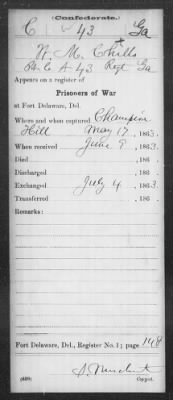 Confederate.
C 43 Ga
W. M. Chills
Pvt Co A 43 Regt Ga
Appears on a register of
Prisoners of War
at Fort Delaware, Del.
Where and when captured Champion
Hill May 17, 1863.
When received June 9, 1863.
Died , 186 .
Discharged , 186 .
Exchanged July 4, 1863.
Transferred , 186 .
Remarks:
Fort Delaware, Del., Register No. 1; page 148
(639) Copyist.